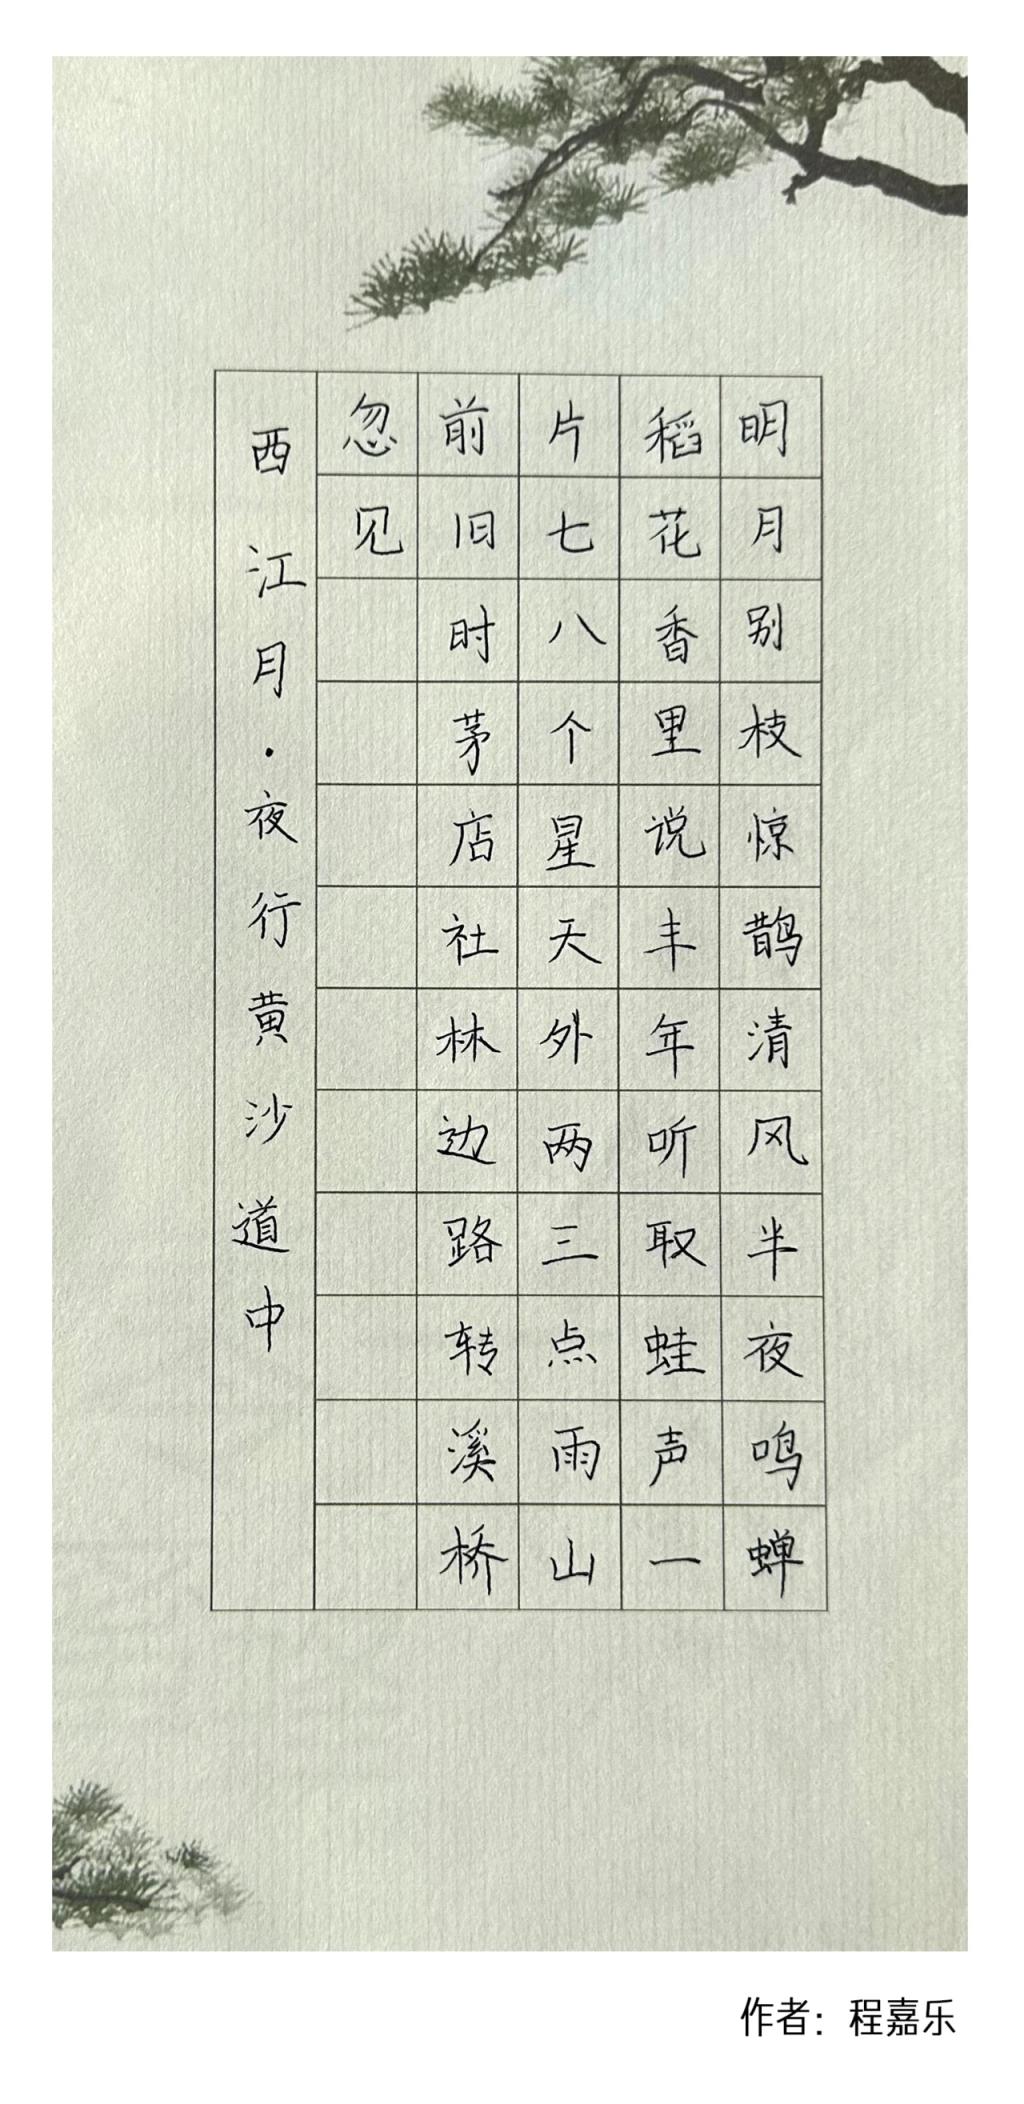 明月别枝惊鹊清风半夜鸣蝉
稻花香里说丰年听取蛙声一
片七八个星天外两三点雨山
前旧时茅店社林边路转溪桥
忽见
西江月·夜行黄沙道中
作者：程嘉乐